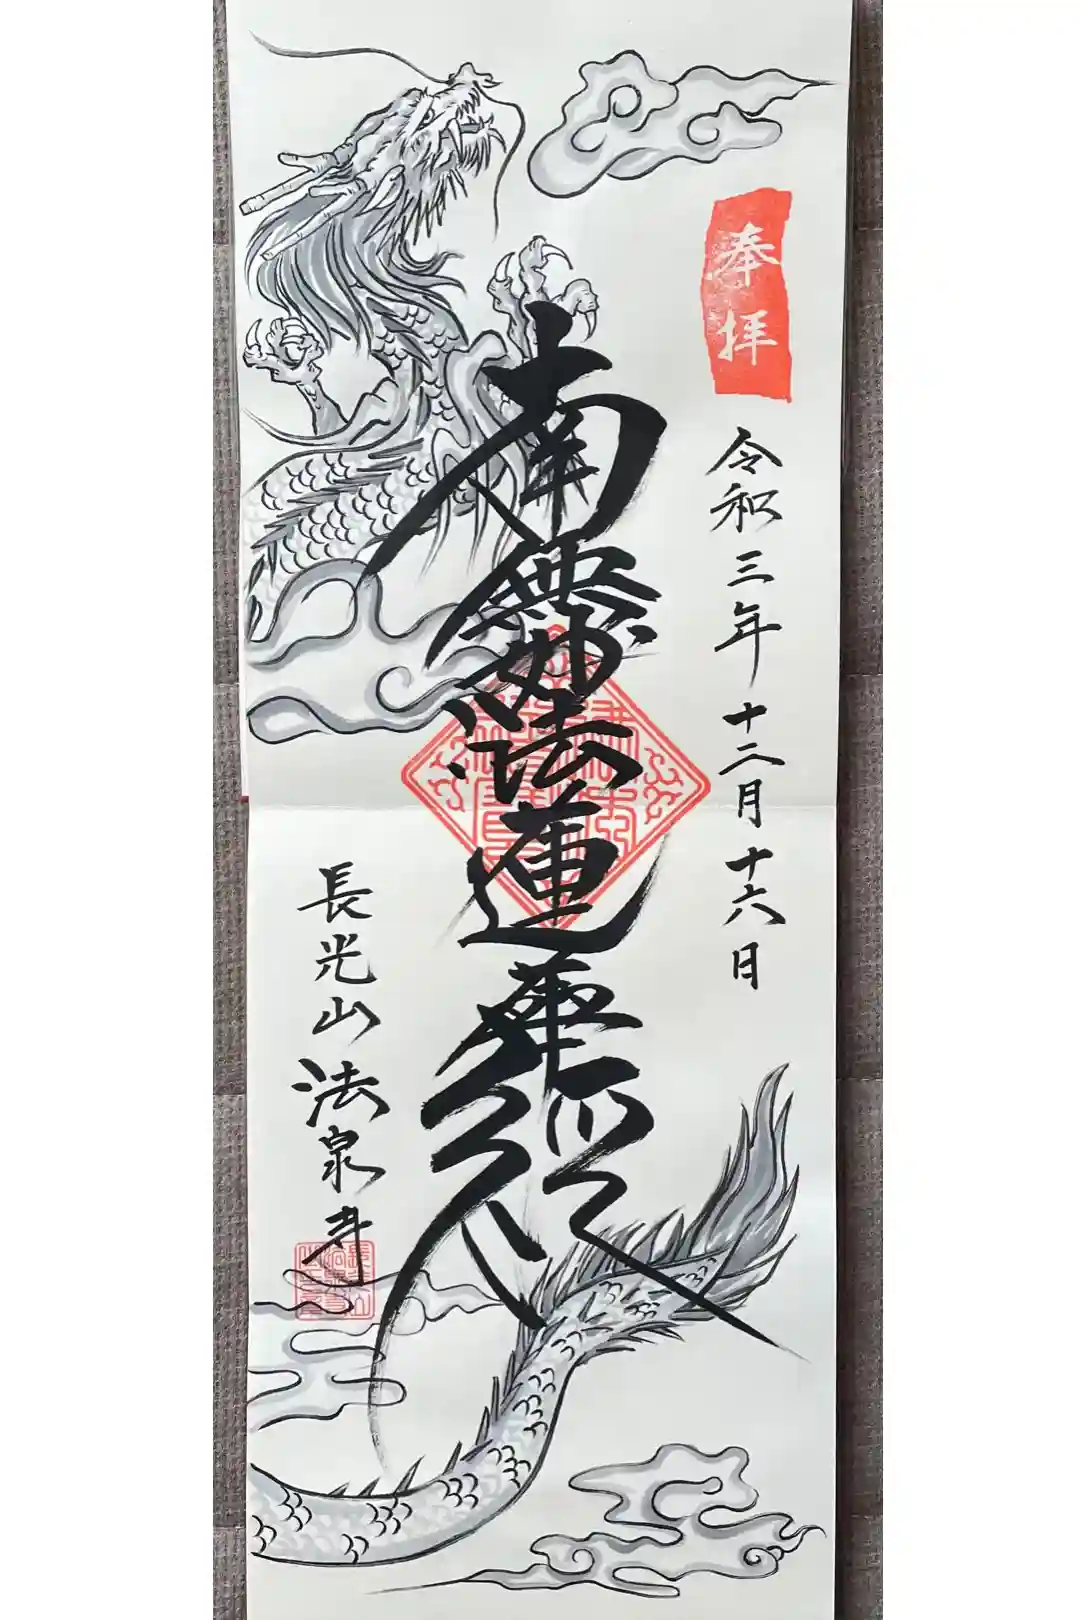 奉拝
令和三年十二月十六日
南無妙法蓮華経
長光山法泉寺